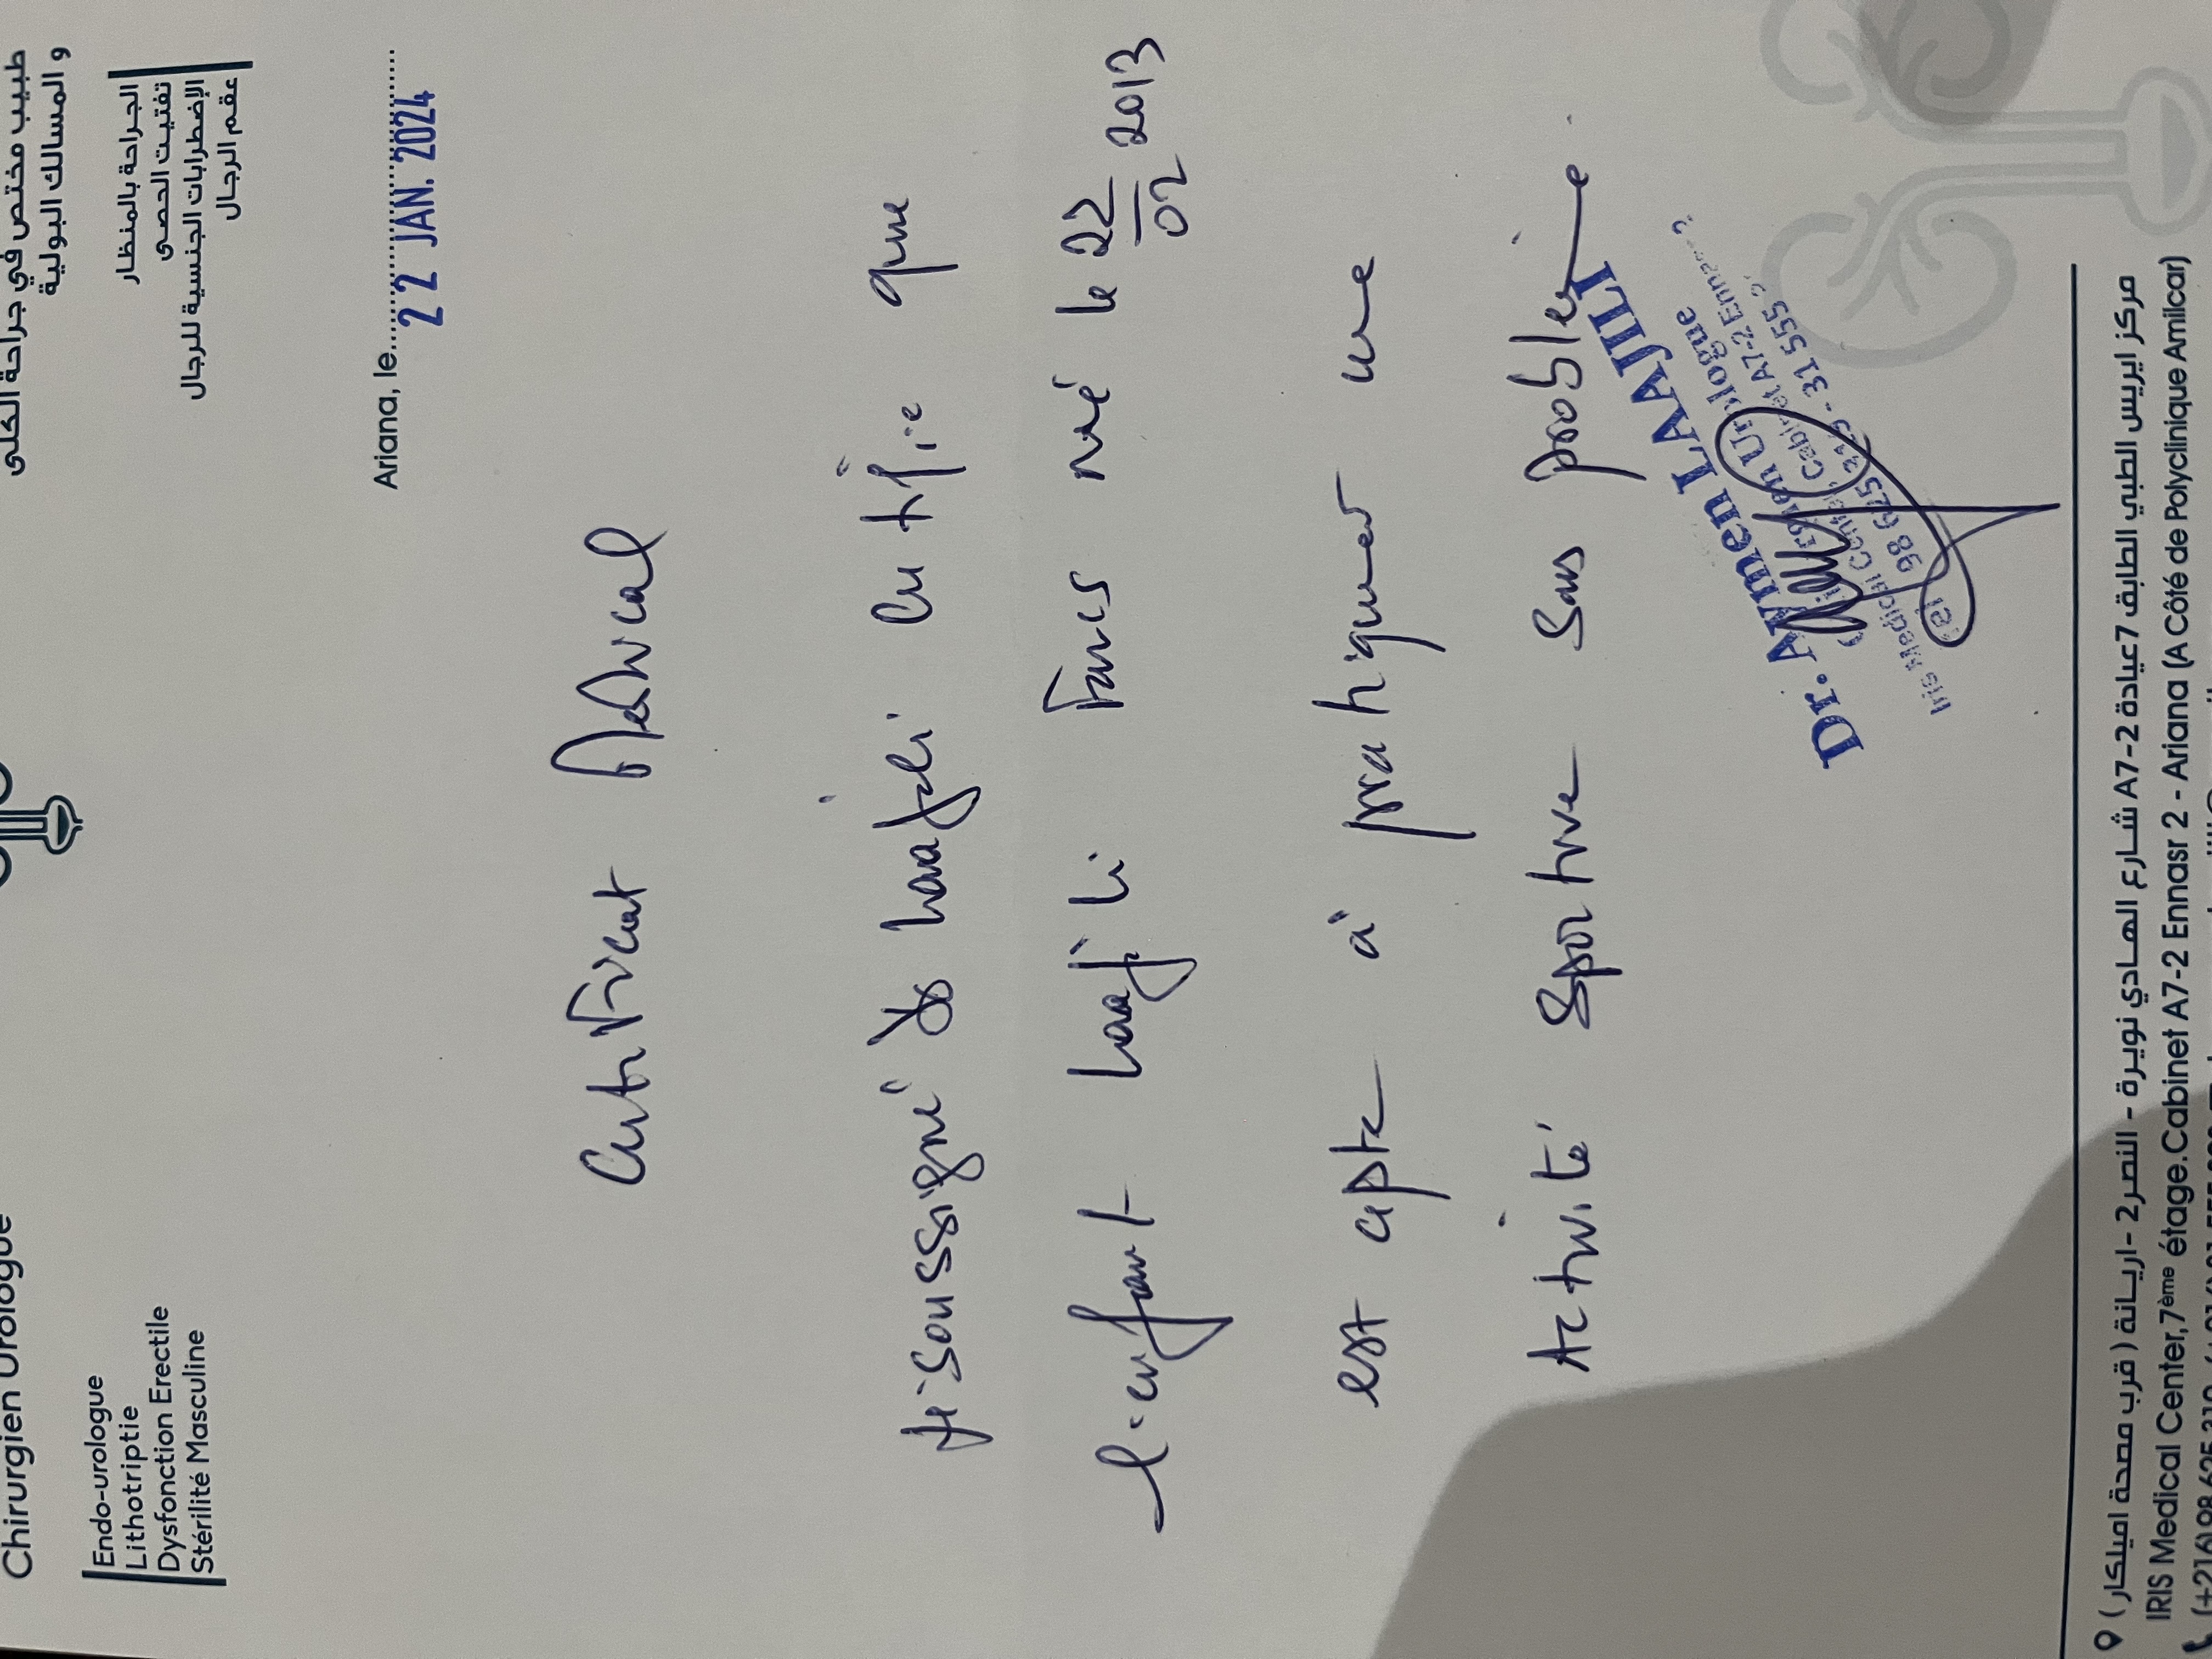 Chirurgien Urologue
طبيب مختص في جراحة الكلى
و المسالك البولية
Endo-urologue
Lithotriptie
Dysfonction Erectile
Stérilité Masculine
الجراحة بالمنظار
تفتيت الحصى
الإضطرابات الجنسية للرجال
عقم الرجال
Ariana, le 22 JAN. 2024
Certificat Médical
Je soussigné Dr Laajili certifie que
l'enfant Laajili Fares né le 22/02 2013
est apte à pratiquer une
Activité Sportive Sans problème.
Dr. Aymen LAAJILI
Chirurgien Urologue
Iris Medical Center Cabinet A7-2
98 625 - 31 555
مركز ايريس الطبي الطابق 7 عيادة A7-2 شارع الهادي نويرة - النصر2 - اريانة ( قرب مصحة اميلكار )
IRIS Medical Center, 7ème étage.Cabinet A7-2 Ennasr 2 - Ariana (A Côté de Polyclinique Amilcar)